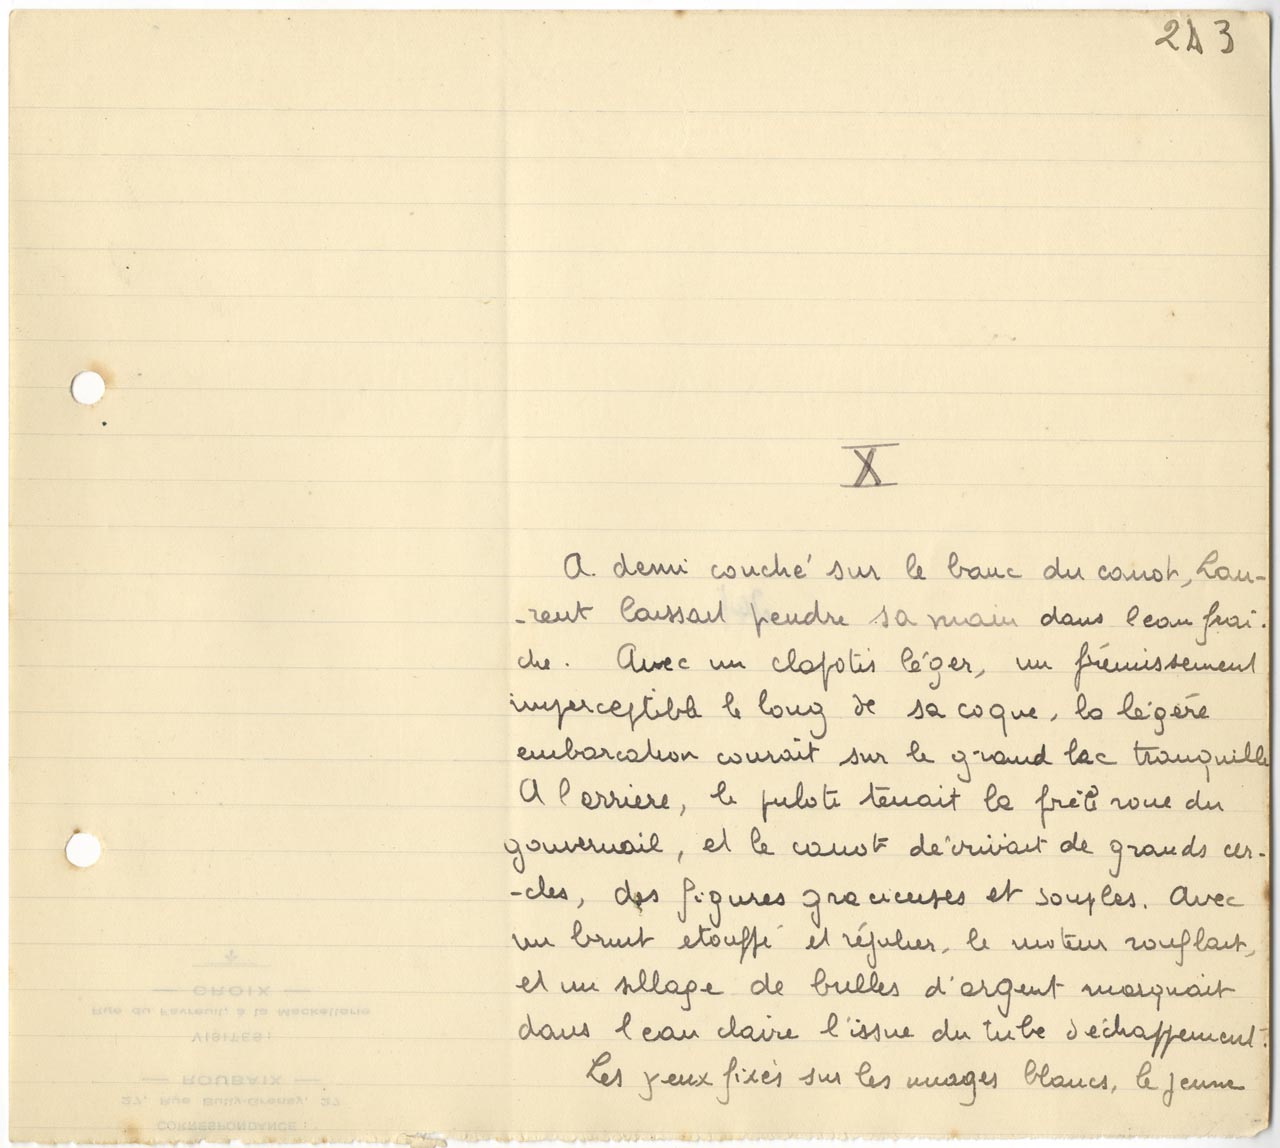 243
X
A demi couché sur le banc du canot, Lau-
-rent laissait pendre sa main dans l'eau fraî-
che. Avec un clapotis léger, un frémissement
imperceptible le long de sa coque, la légère
embarcation courait sur le grand lac tranquille
A l'arrière, le pilote tenait la frêle roue du
gouvernail, et le canot décrivait de grands cer-
-cles, des figures gracieuses et souples. Avec
un bruit étouffé et régulier, le moteur ronflait,
et un sillage de bulles d'argent marquait
dans l'eau claire l'issue du tube d'échappement.
Les yeux fixés sur les nuages blancs, le jeune
CROIX
Rue du Favreuil, à la Mackellerie
VISITES:
ROUBAIX
27, Rue Bully-Grenay, 27
CORRESPONDANCE: